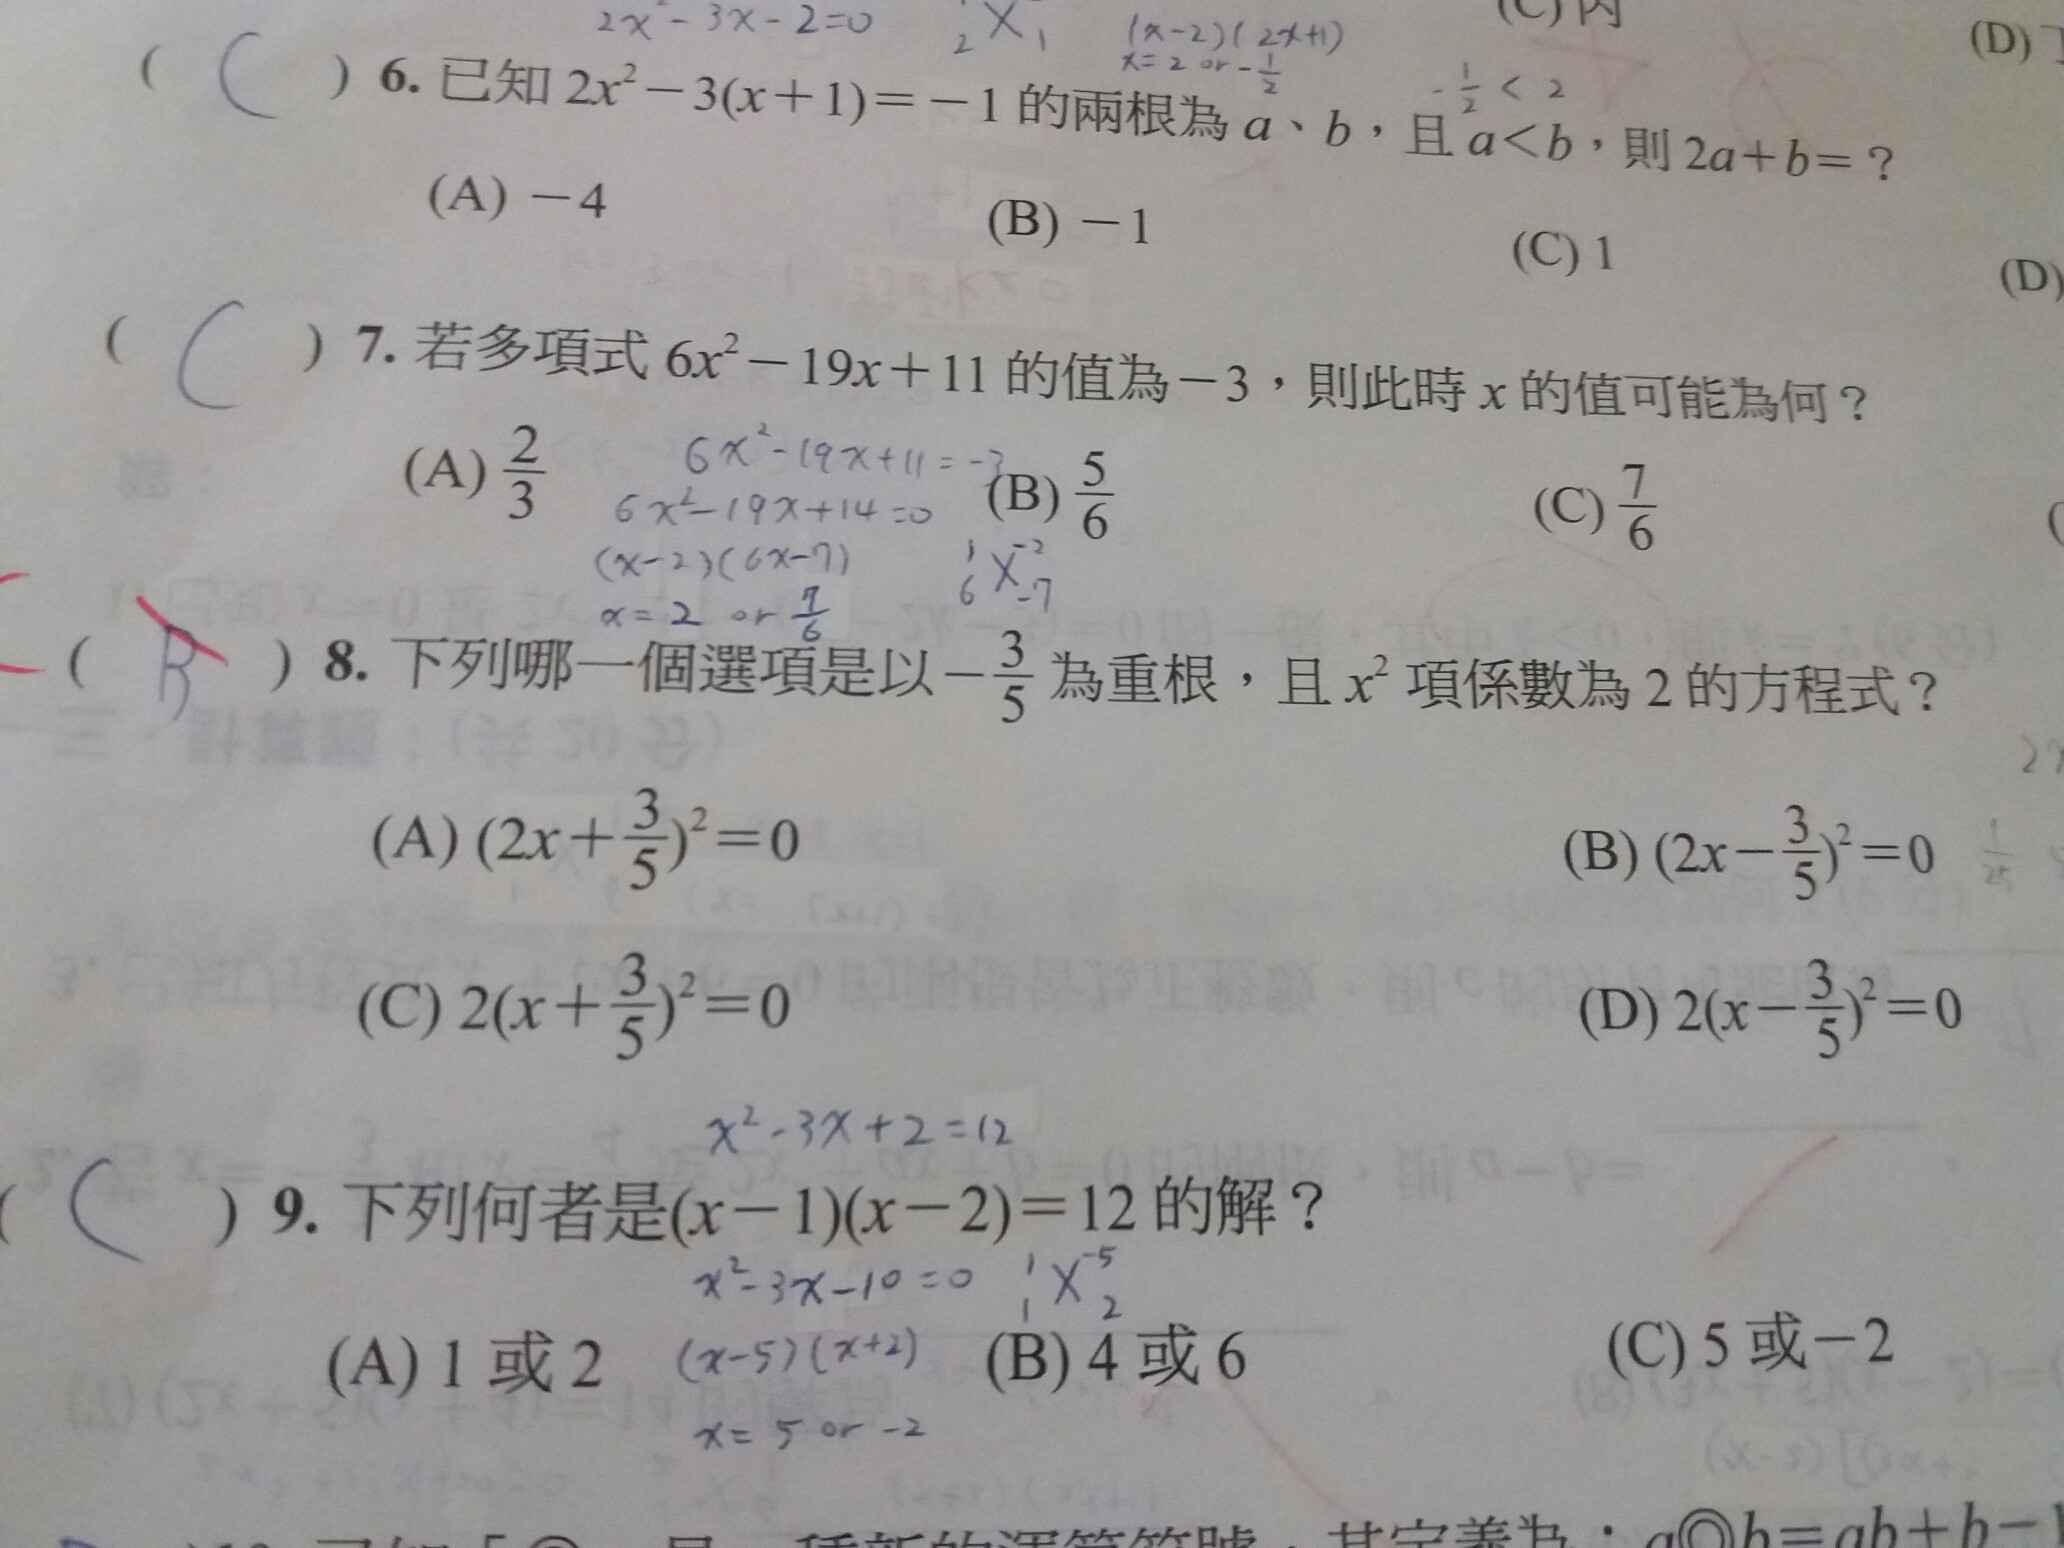 2x²-3x-2=0 (x-2)(2x+1)
(C)丙 (D)
x=2 or -1/2
-1/2 < 2
( C ) 6. 已知 2x²－3(x＋1)＝－1 的兩根為 a、b，且 a＜b，則 2a＋b＝？
(A) －4 (B) －1 (C) 1 (D)
( C ) 7. 若多項式 6x²－19x＋11 的值為－3，則此時 x 的值可能為何？
(A) 2/3 (B) 5/6 (C) 7/6 (
6x²-19x+11=-3
6x²-19x+14=0
(x-2)(6x-7)
1 -2
6 -7
x=2 or 7/6
( B ) 8. 下列哪一個選項是以－3/5 為重根，且 x² 項係數為 2 的方程式？
(A) (2x＋3/5)²＝0 (B) (2x－3/5)²＝0
(C) 2(x＋3/5)²＝0 (D) 2(x－3/5)²＝0
x²-3x+2=12
( C ) 9. 下列何者是(x－1)(x－2)＝12 的解？
x²-3x-10=0
1 -5
1 2
(A) 1 或 2 (B) 4 或 6 (C) 5 或－2
(x-5)(x+2)
x=5 or -2
種新的運算符號，其定義為：a◎b＝ab＋b－1